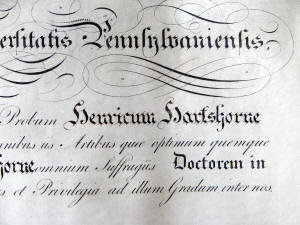 ersitatis Pennsylvaniensis.
Probum Henricum Hartshorne
nibus us Artibus quæ optimum quemque
horne omnium Suffragiis Doctorem in
s et Privilegia ad illum Gradum inter nos